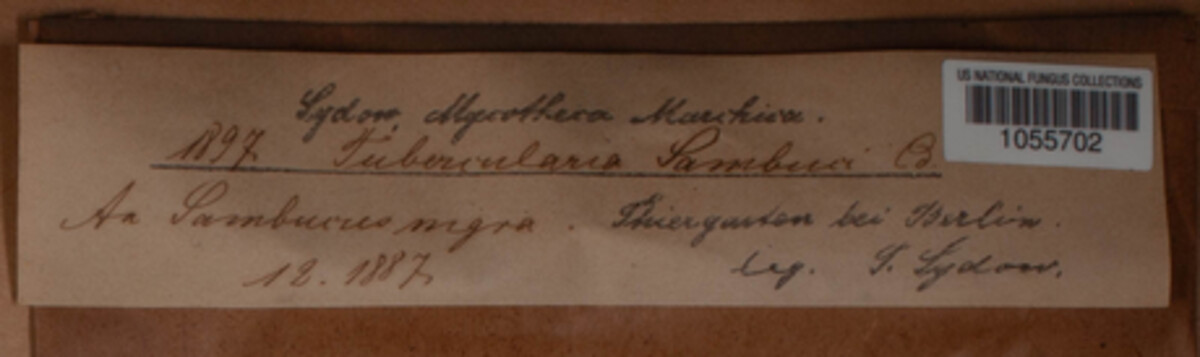 Sydow, Mycotheca Marchica.
US NATIONAL FUNGUS COLLECTIONS
1055702
1897 Tubercularia Sambuci C.
An Sambucus nigra. Thiergarten bei Berlin.
12. 1887 leg. P. Sydow.